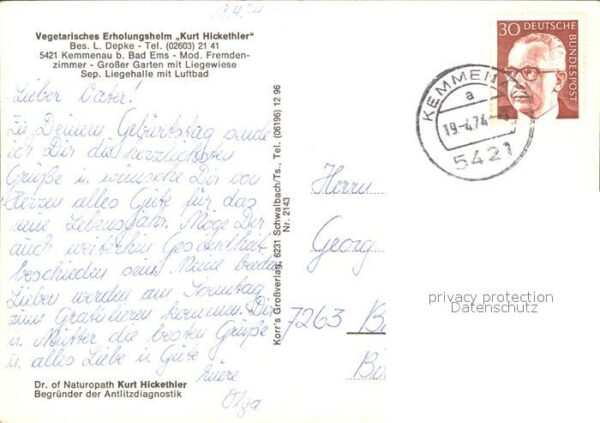 18.4.74
Vegetarisches Erholungsheim „Kurt Hickethier"
Bes. L. Depke - Tel. (02603) 21 41
5421 Kemmenau b. Bad Ems - Mod. Fremden-
zimmer - Großer Garten mit Liegewiese
Sep. Liegehalle mit Luftbad
Lieber Vater!
Zu Deinem Geburtstag sende
ich Dir die herzlichsten
Grüße u. wünsche Dir von
Herzen alles Gute für das
neue Lebensjahr. Möge Dir
auch weiterhin Gesundheit
beschieden sein. Meine beiden
Lieben werden am Sonntag
zum Gratulieren kommen. Dir
u. Mutter die besten Grüße
u. alles Liebe u. Gute
Olga
Dr. of Naturopath Kurt Hickethier
Begründer der Antlitzdiagnostik
Korr's Großverlag, 6231 Schwalbach/Ts., Tel. (06196) 12 96
Nr. 2143
30 DEUTSCHE
BUNDESPOST
KEMMEN
a
19.-4.74
5421
Herrn
Georg
7263 B
privacy protection
Datenschutz